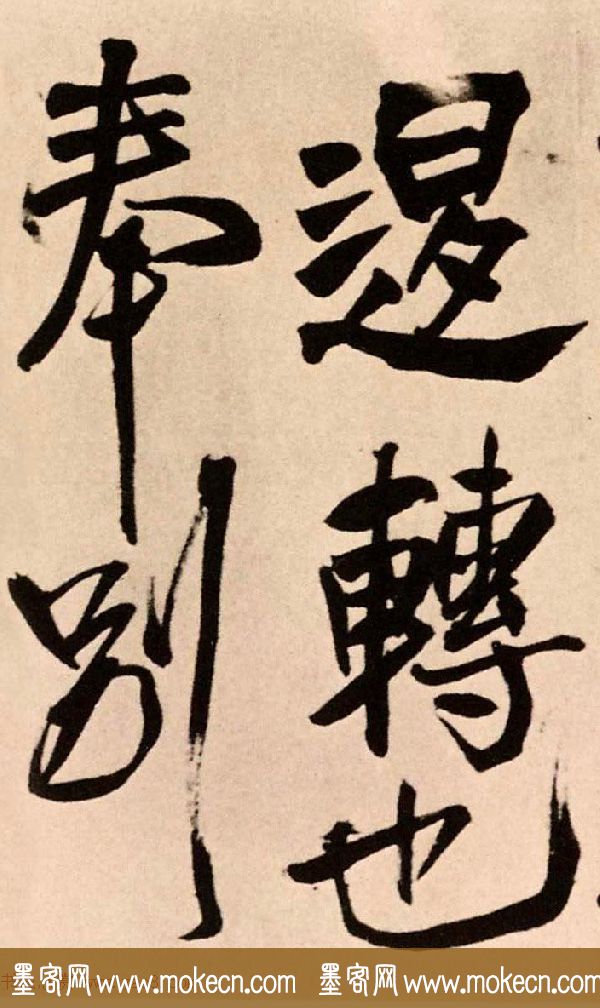 退轉也
奉别
墨客网 www.mokecn.com 墨客网 www.mokecn.com